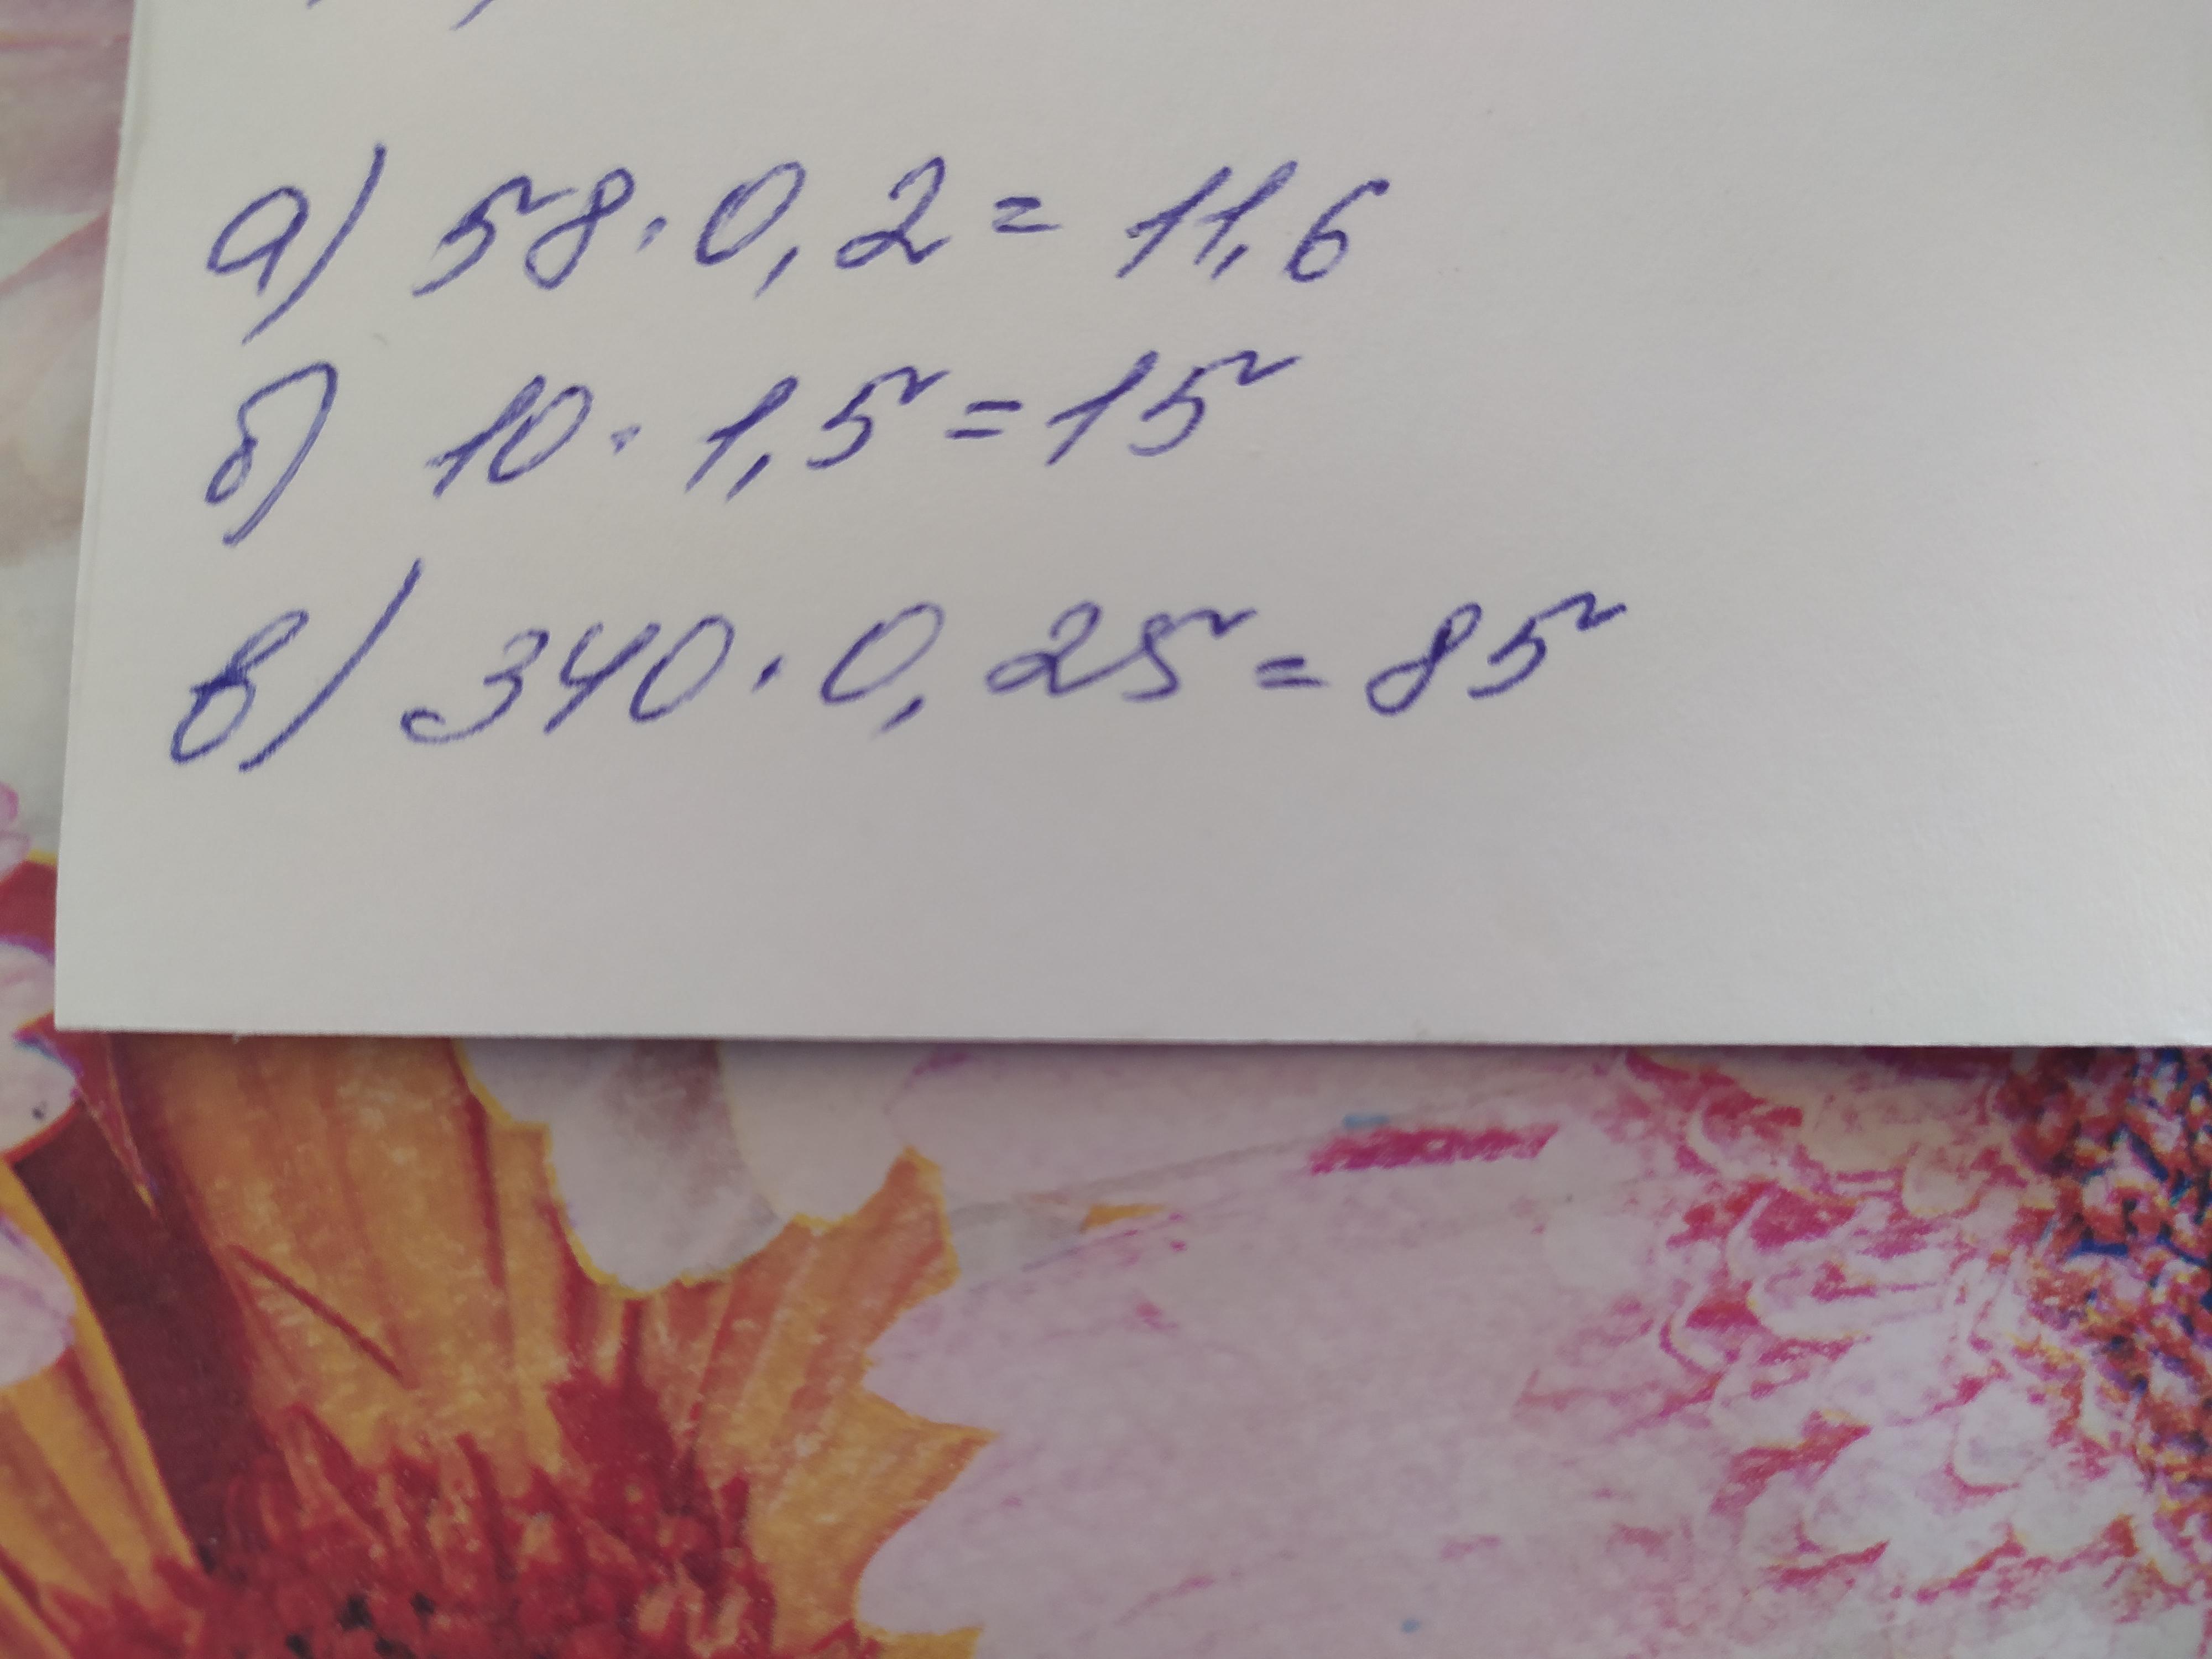 а) 58 · 0,2 = 11,6
б) 10 · 1,5 = 15
в) 340 · 0,25 = 85